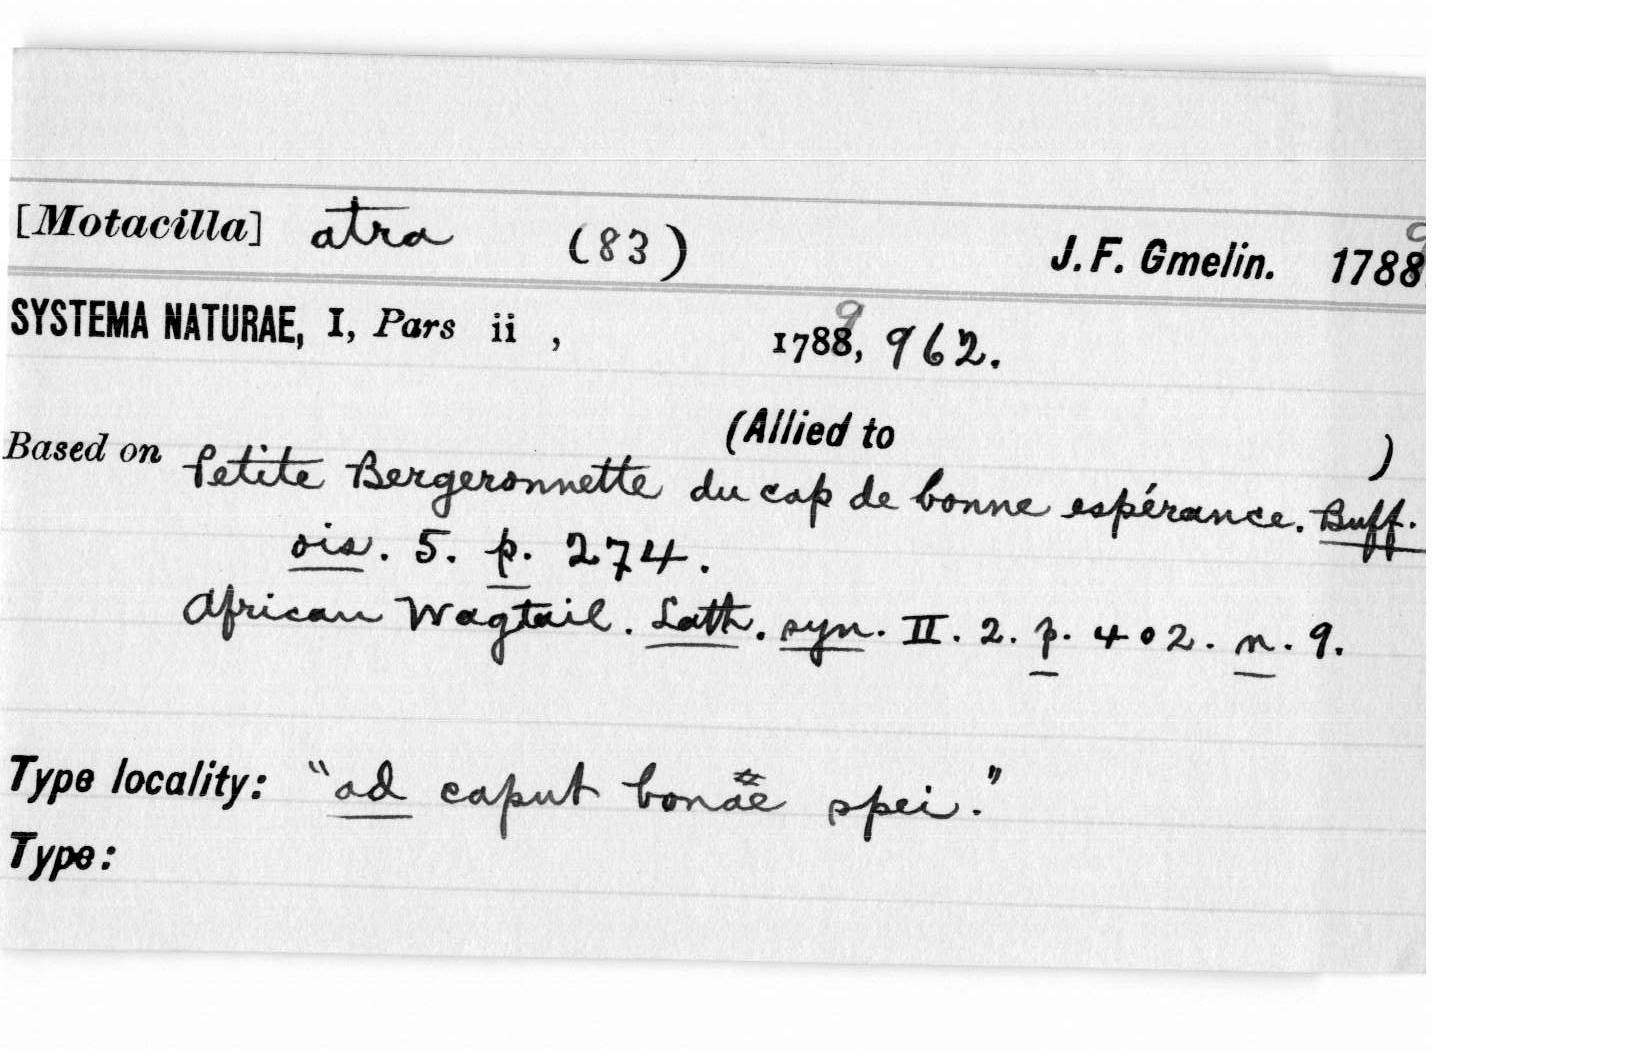 [Motacilla] atra (83) J. F. Gmelin. 1788 9
SYSTEMA NATURAE, I, Pars ii , 1788 9, 962.
(Allied to )
Based on Petite Bergeronnette du cap de bonne espérance. Buff.
ois. 5. p. 274.
African Wagtail. Lath. syn. II. 2. p. 402. n. 9.
Type locality: "ad caput bonae spei."
Type: